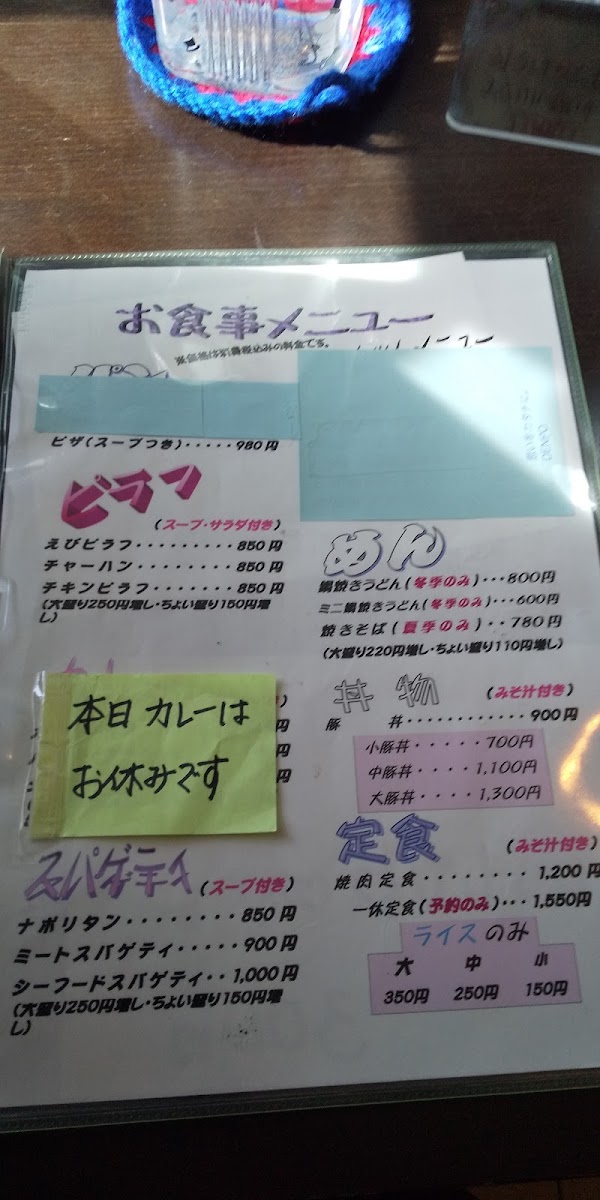 お食事メニュー
表価格は消費税込みの料金です。
メニュー
ピザ(スープつき)・・・・・980円
ピラフ
(スープ・サラダ付き)
えびピラフ・・・・・・・・・850円
チャーハン・・・・・・・・・850円
チキンピラフ・・・・・・・850円
(大盛り250円増し・ちょい盛り150円増し)
本日カレーは
お休みです
スパゲティ(スープ付き)
ナポリタン・・・・・・・・850円
ミートスパゲティ・・・・・900円
シーフードスパゲティ・・1,000円
(大盛り250円増し・ちょい盛り150円増し)
めん
鍋焼きうどん(冬季のみ)・・・800円
ミニ鍋焼きうどん(冬季のみ)・・・600円
焼きそば(夏季のみ)・・780円
(大盛り220円増し・ちょい盛り110円増し)
丼物(みそ汁付き)
豚丼・・・・・・・・・・・・900円
小豚丼・・・・・700円
中豚丼・・・・1,100円
大豚丼・・・・1,300円
定食(みそ汁付き)
焼肉定食・・・・・・・・1,200円
一休定食(予約のみ)・・・1,550円
ライスのみ
大 中 小
350円 250円 150円